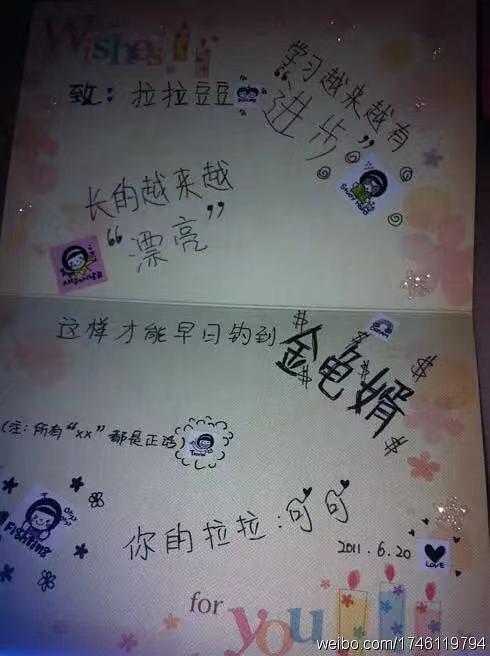 Wishes
致：拉拉豆豆
学习越来越有
“进步”
长的越来越
“漂亮”
这样才能早日钓到
金龟婿
$ $ $ $ $ $
(注：所有“xx”都是正话)
Fighting
你的拉拉：可可
2011.6.20
LOVE
for you
weibo.com/1746119794